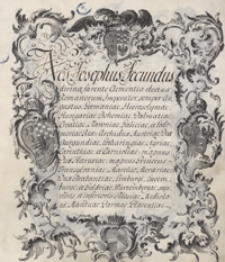 Nos Josephus Secundus
divina favente Clementia electus
Romanorum Imperator, semper Au
gustus, Germaniae, Hierosolymae,
Hungariae, Bohemiae, Dalmatiae,
Croatiae, Slavoniae, Galiciae, et Lodo
meriae Rex, Archidux Austriae, Dux
Burgundiae, Lotharingiae, Styriae,
Carinthiae et Carnioliae, magnus
Dux Hetruriae, magnus Princeps
Transylvaniae, Marchio Moraviae
Dux Brabantiae, Limburgi, Lucem
burgi, et Geldriae, Würtembergae, su
perioris et inferioris Silesiae, Mediola
ni, Mantuae, Parmae, Placentiae